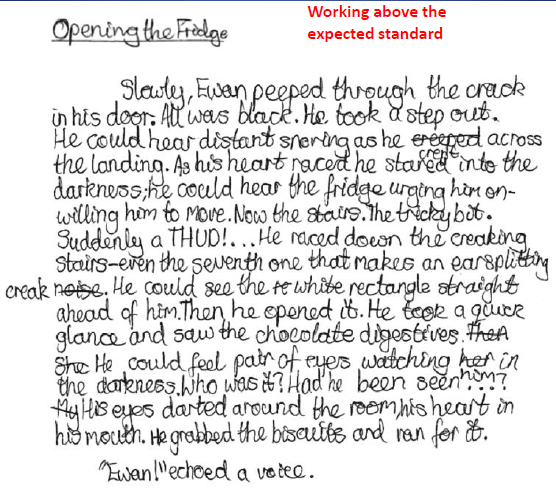 Working above the
expected standard
Opening the Fridge
Slowly, Ewan peeped through the crack
in his door. All was black. He took a step out.
He could hear distant snoring as he creeped crept across
the landing. As his heart raced he stared into the
darkness; he could hear the fridge urging him on-
willing him to move. Now the stairs. The tricky bit.
Suddenly a THUD!... He raced down the creaking
stairs-even the seventh one that makes an earsplitting
creak noise. He could see the re white rectangle straight
ahead of him. Then he opened it. He took a quick
glance and saw the chocolate digestives. Then
She He could feel pair of eyes watching her him in
the darkness. Who was it? Had he been seen?!?
My His eyes darted around the room, his heart in
his mouth. He grabbed the biscuits and ran for it.
"Ewan!" echoed a voice.